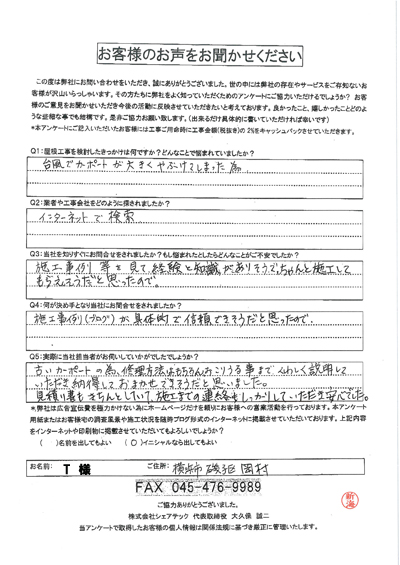 お客様のお声をお聞かせください
この度は弊社にお問い合わせをいただき、誠にありがとうございました。世の中には弊社の存在やサービスをご存知ないお
客様が沢山いらっしゃいます。その方たちに弊社をよく知っていただくためのアンケートにご協力いただけるでしょうか? お客
様のご意見をお聞かせいただき今後の活動に反映させていただきたいと考えております。良かったこと、嬉しかったことどのよ
うな些細な事でも結構です。是非ご協力お願い致します。(出来るだけ具体的に書いていただければ幸いです)
*本アンケートにご記入いただいたお客様には工事ご用命時に工事金額(税抜き)の2%をキャッシュバックさせていただきます。
Q1:屋根工事を検討したきっかけは何ですか?どんなことで悩まれていましたか?
台風でカーポートが大きくやぶけてしまった為
Q2:業者や工事会社をどのように探されましたか?
インターネットで検索
Q3:当社を知りすぐにお問合せをされましたか?もし悩まれたとしたらどんなことがご不安でしたか?
施工事例等を見て、経験と知識がありそうで、ちゃんと施工して
もらえそうだと思ったので。
Q4:何が決め手となり当社にお問合せをされましたか?
施工事例(ブログ)が具体的で信頼できそうだと思ったので。
Q5:実際に当社担当者がお伺いしていかがでしたでしょうか?
古いカーポートの為、修理方法はもちろんおこりうる事までくわしく説明して
いただき納得しておまかせできそうだと思いました。
見積り書もきちんとしていて、施工までの連絡もしっかりしていただき安心でした。
*.弊社は広告宣伝費を極力かけない為にホームページだけを頼りにお客様への営業活動を行っております。本アンケート
用紙またはお客様宅の調査風景や施工状況を随時ブログ形式でインターネットに掲載させていただいております。上記内容
をインターネットや印刷物に掲載させていただいてもよろしいでしょうか?
( )名前を出してもよい ( ○ )イニシャルなら出してもよい
お名前: T 様 ご住所: 横浜市 磯子区 岡村
FAX 045-476-9989
ご協力ありがとうございました。
新海
株式会社シェアテック 代表取締役 大久保 誠二
当アンケートで取得したお客様の個人情報は関係法規に基づき厳正に管理いたします。